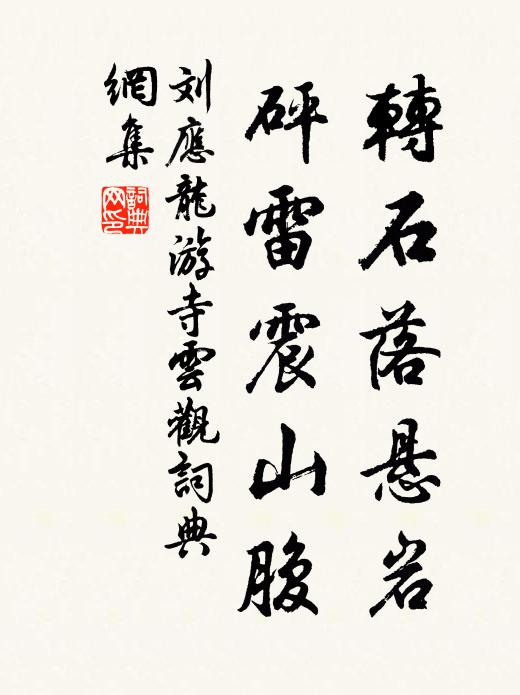 轉石落悬岩
砰雷震山腹
刘應龍游寺雲觀詞典
網集
詞典
网印